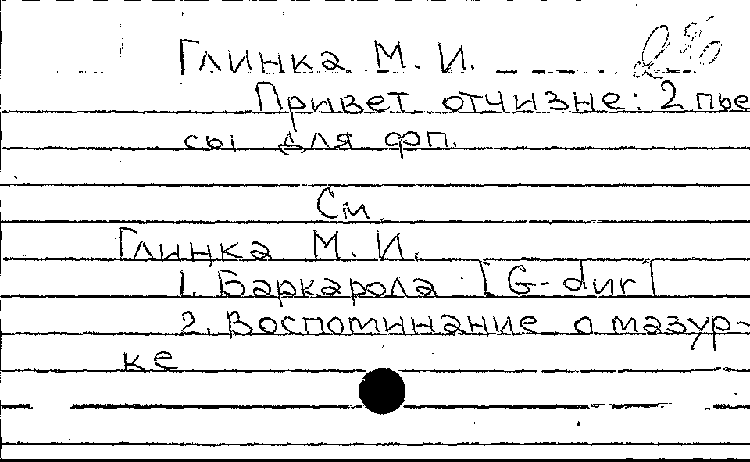 Глинка М. И.
Привет отчизне: 2 пье
сы для фп.
См.
Глинка М. И.
1. Баркарола [G-dur]
2. Воспоминание о мазур-
ке